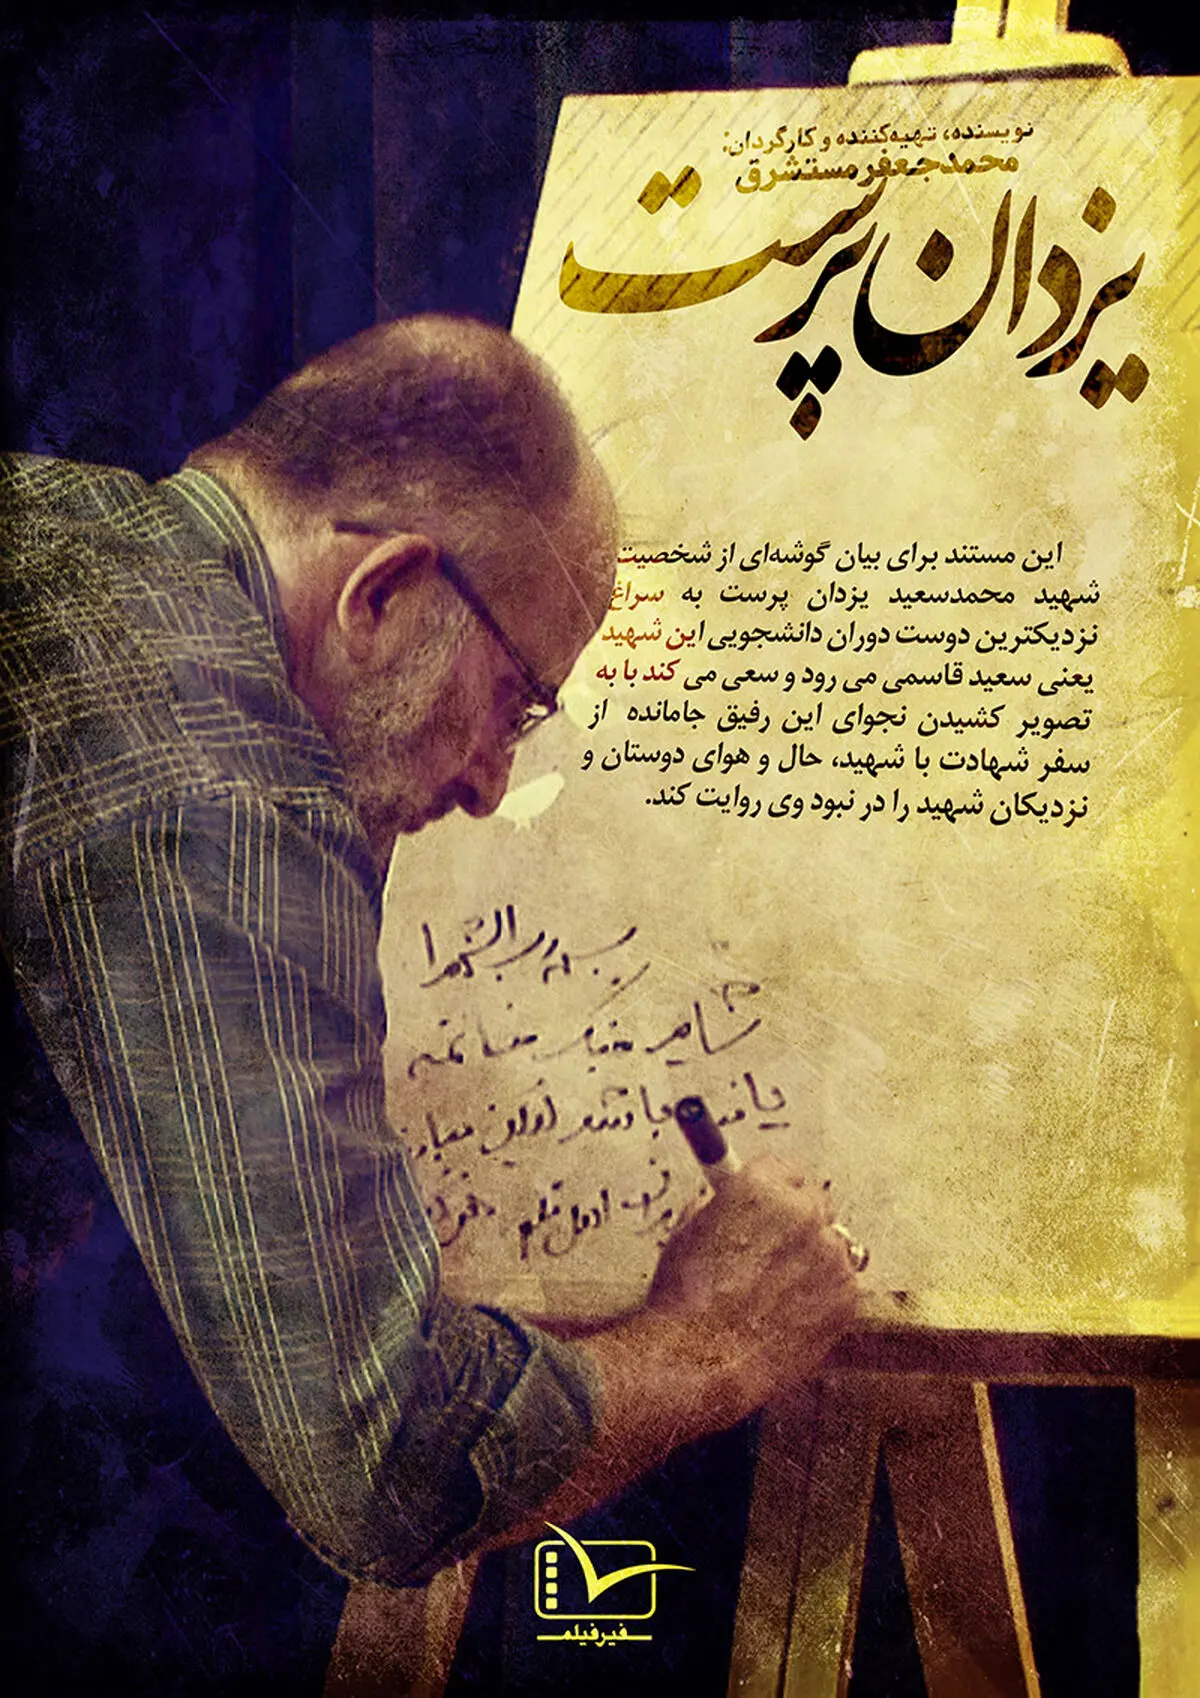 نویسنده، تهیه‌کننده و کارگردان:
محمدجعفر مستشرق
یزدان پرست
این مستند برای بیان گوشه‌ای از شخصیت
شهید محمدسعید یزدان پرست به سراغ
نزدیکترین دوست دوران دانشجویی این شهید
یعنی سعید قاسمی می رود و سعی می کند با به
تصویر کشیدن نجوای این رفیق جامانده از
سفر شهادت با شهید، حال و هوای دوستان و
نزدیکان شهید را در نبود وی روایت کند.
شاید
اول
فیرفیلم